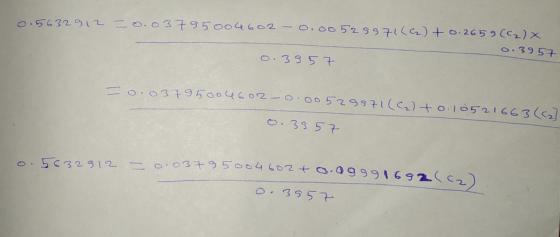 0.5632912 = 0.03795004602 - 0.00529971(C₂) + 0.2659(C₂) ×
0.3957
0.3957
= 0.03795004602 - 0.00529971(C₂) + 0.10521663(C₂)
0.3957
0.5632912 = 0.03795004602 + 0.09991692(C₂)
0.3957